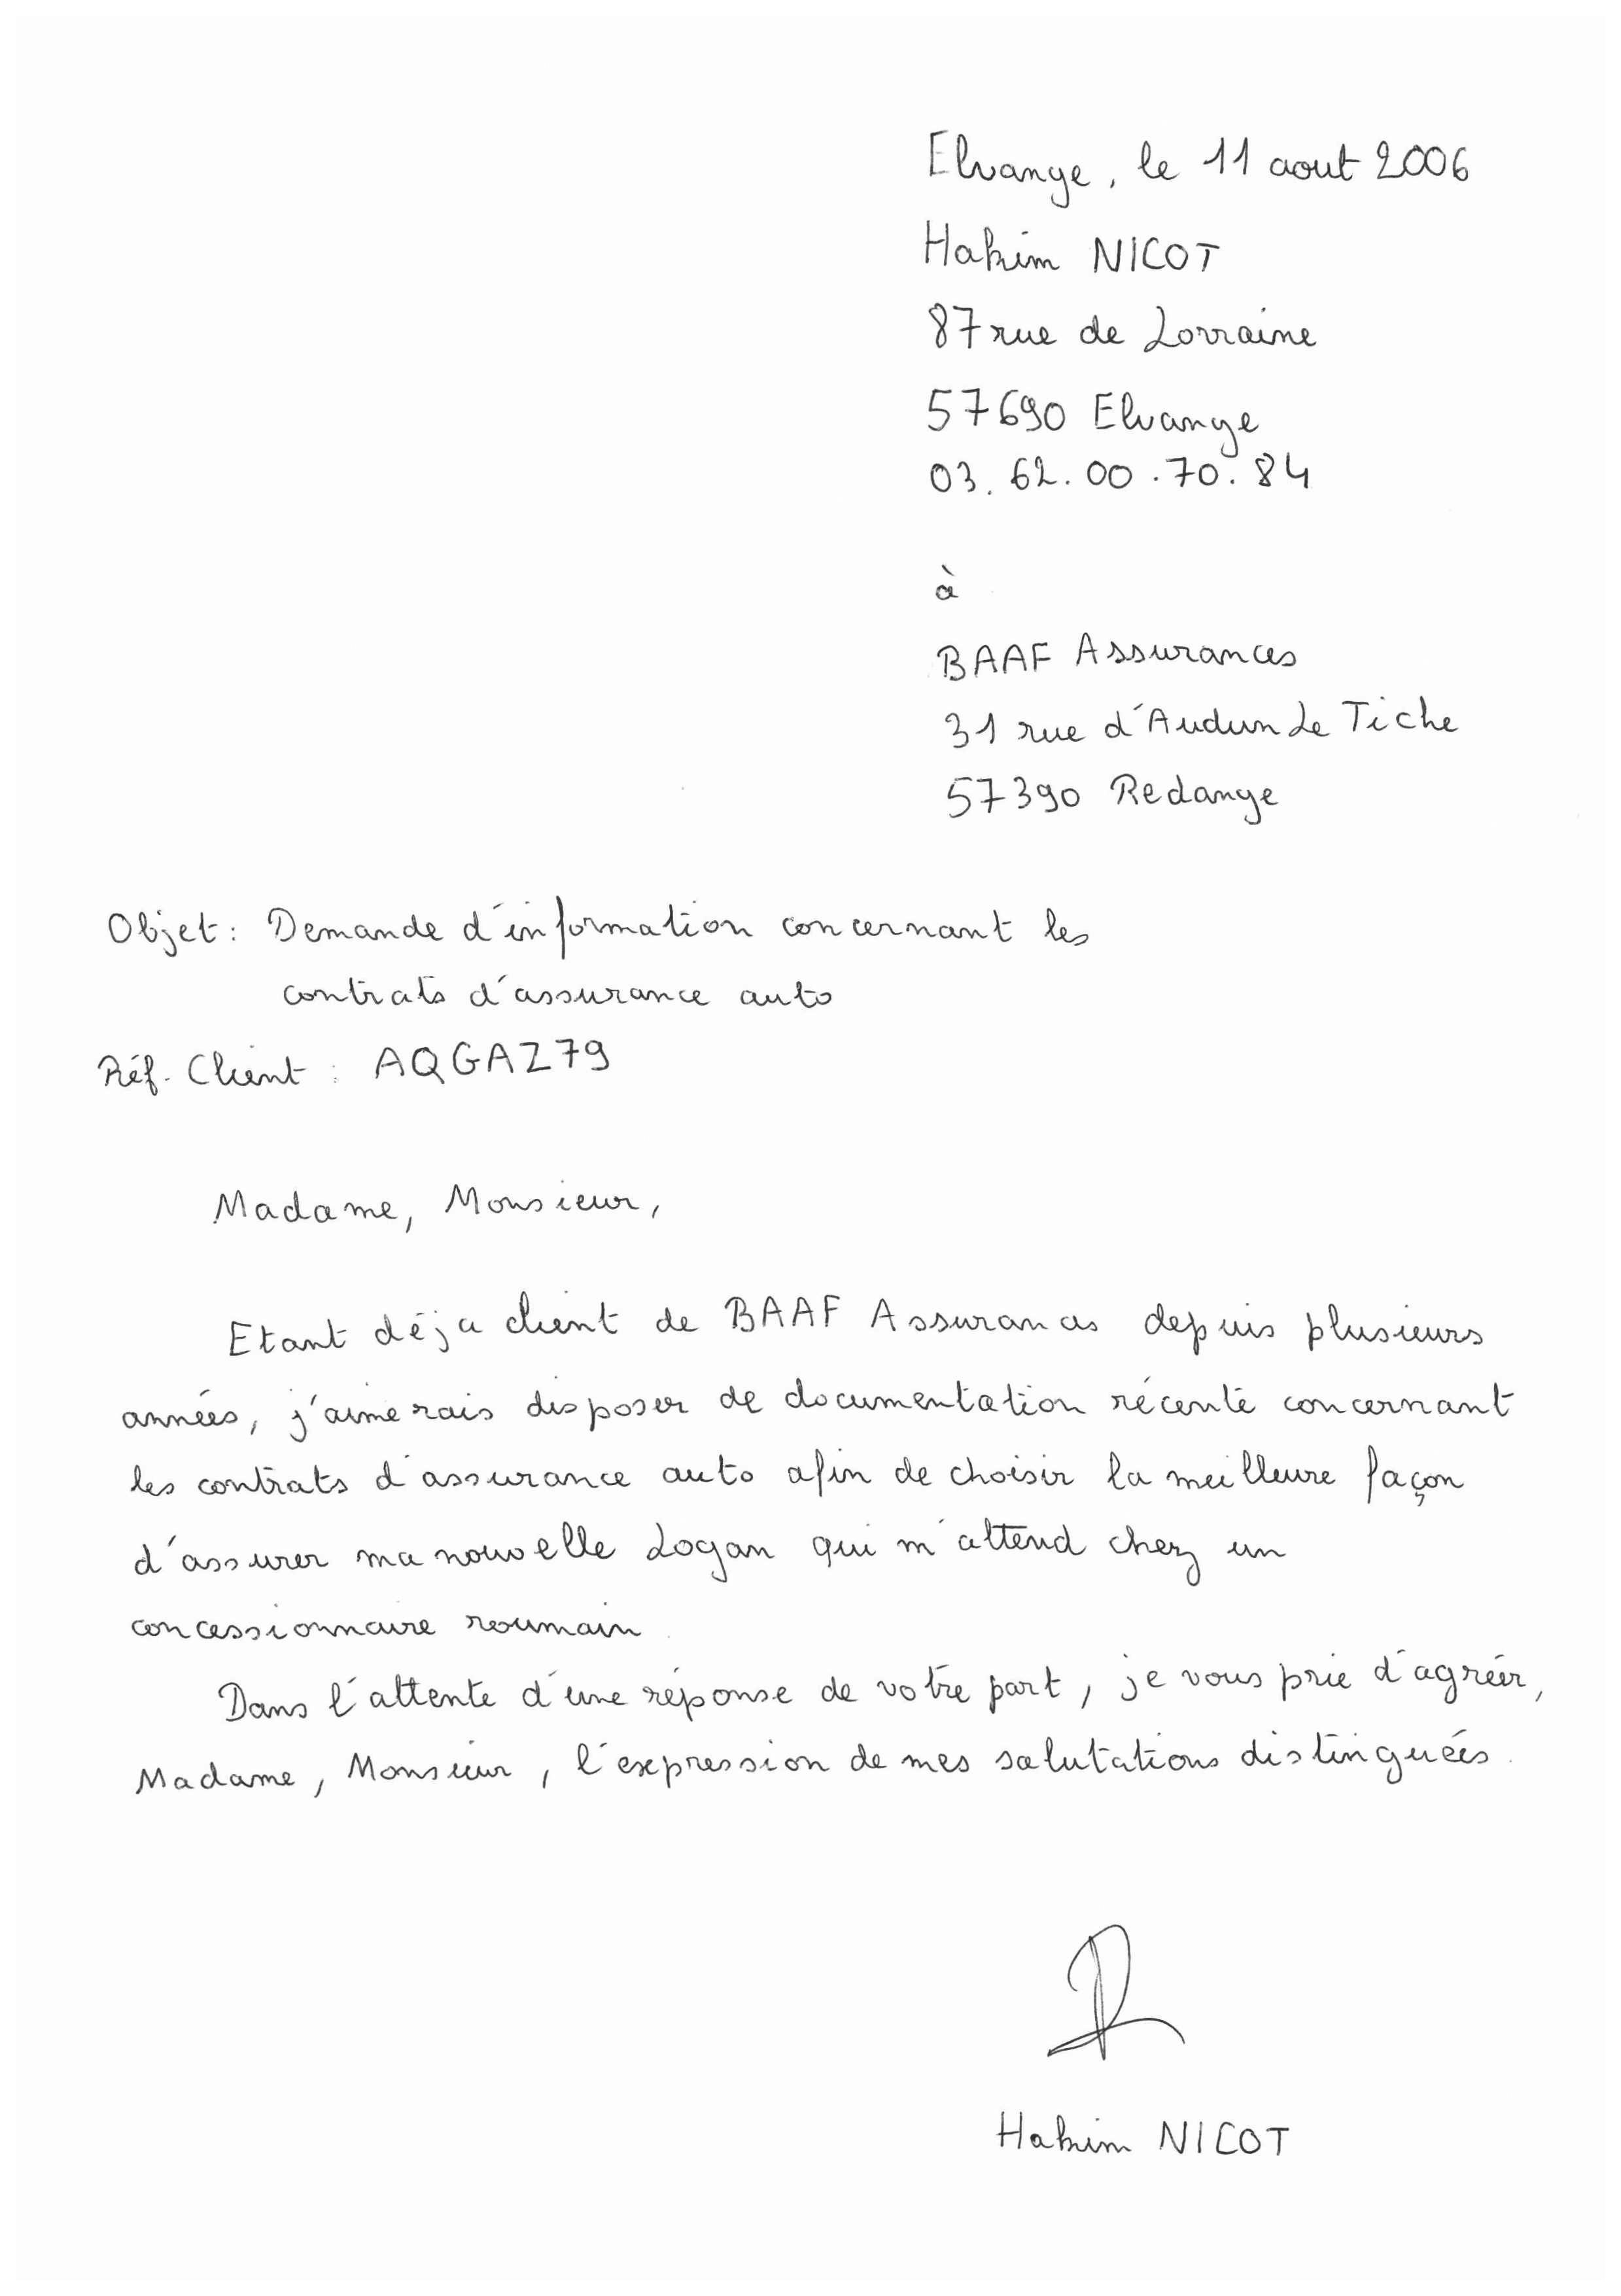 Elvange, le 11 aout 2006
Hakim NICOT
87 rue de Lorraine
57690 Elvange
03.62.00.70.84
à
BAAF Assurances
31 rue d'Audun Le Tiche
57390 Redange
Objet: Demande d'information concernant les
contrats d'assurance auto
Réf. Client : AQGAZ79
Madame, Monsieur,
Etant déja client de BAAF Assurances depuis plusieurs
années, j'aimerais disposer de documentation récente concernant
les contrats d'assurance auto afin de choisir la meilleure façon
d'assurer ma nouvelle Logan qui m'attend chez un
concessionnaire roumain.
Dans l'attente d'une réponse de votre part, je vous prie d'agréer,
Madame, Monsieur, l'expression de mes salutations distinguées.
Hakim NICOT